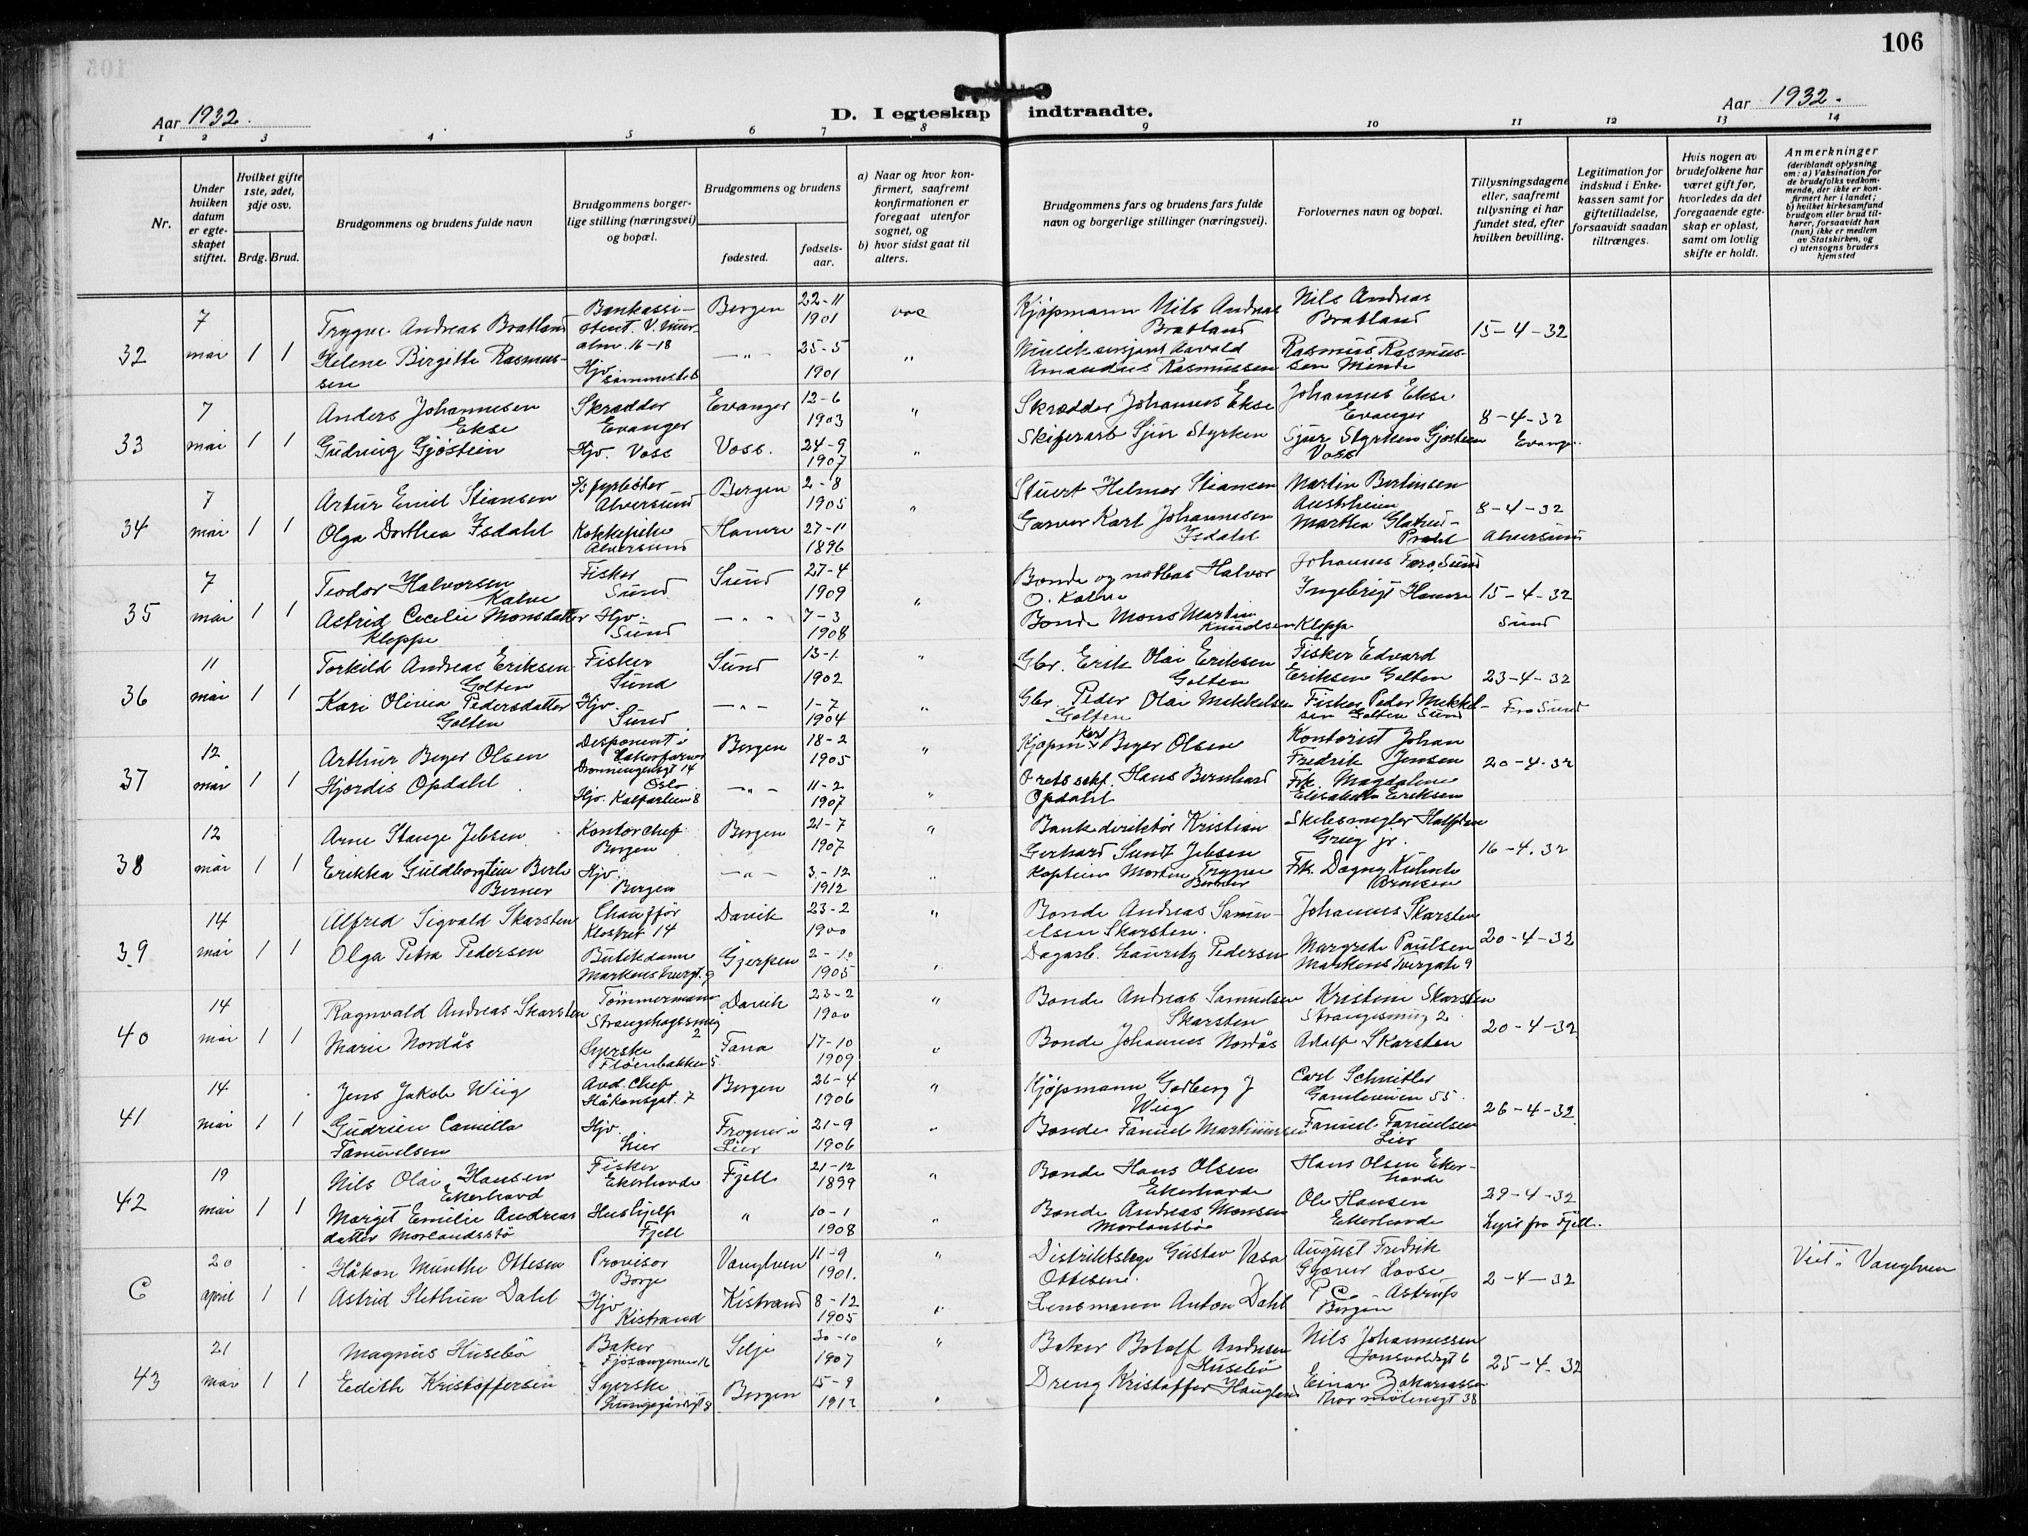 106
Aar 1932.
D. I egteskap indtraadte.
Aar 1932.
1 2 3 4 5 6 7 8 9 10 11 12 13 14
Nr.
Under hvilken datum er egteskapet stiftet.
Hvilket gifte 1ste, 2det, 3dje osv.
Brdg. Brud.
Brudgommens og brudens fulde navn
Brudgommens borgerlige stilling (næringsvei) og bopæl.
Brudgommens og brudens
fødested.
fødsels-aar.
a) Naar og hvor konfirmert, saafremt konfirmationen er foregaat utenfor sognet, og
b) hvor sidst gaat til alters.
Brudgommens fars og brudens fars fulde navn og borgerlige stillinger (næringsvei).
Forlovernes navn og bopæl.
Tillysningsdagene eller, saafremt tillysning ei har fundet sted, efter hvilken bevilling.
Legitimation for indskud i Enkekassen samt for giftetilladelse, forsaavidt saadan tiltrænges.
Hvis nogen av brudefolkene har været gift før, hvorledes da det foregaaende egteskap er opløst, samt om lovlig skifte er holdt.
Anmerkninger
(deriblandt oplysning om: a) Vaksination for de brudefolks vedkommende, der ikke er konfirmert her i landet; b) hvilket kirkesamfund brudgom eller brud tilhører, forsaavidt han (hun) ikke er medlem av Statskirken, og c) utensogns bruders hjemsted
32 7 mai 1 1
Trygve Andreas Bratland Bankassistent. Bergen 22-11 1901 Kjøpmann Nils Andreas Bratland Nils Andreas Bratland 15-4-32
Helene Birgitte Rasmussen Hjv. sammesteds —"— 25-5 1901 " Amandus Rasmussen Rasmus Rasmussen Minde
33 7 mai 1 1
Anders Johannesen Ekse Skrædder Evanger Evanger 12-6 1903 " Skrædder Johannes Ekse Johannes Ekse Evanger 8-4-32
Gudrun Gjøstein Hjv. Voss Voss. 24-9 1907 " Skiferarb Sjur Styrken Sjur Styrken Gjøstein Voss
34 7 mai 1 1
Artur Emil Stiansen Alversund Bergen 2-8 1905 " Stuert Helmer Stiansen Martin Bertinsen Austrheim 8-4-32
Olga Dorthea Isdahl Kokkepike Alversund Hamre 27-11 1896 Garver Karl Johannesen Isdahl Martha Alversund
35 7 mai 1 1
Teodor Halvorsen Kalve Fisker Sund Sund 27-4 1909 " Bonde og notbas Halvor O. Kalve Ingebrigt Hamre 15-4-32
Astrid Cecelie Monsdatter Kleppe Hjv. Sund —"— 7-3 1908 Bonde Mons Martin Knudsen Kleppe Sund
36 11 mai 1 1
Torkild Andreas Eriksen Golten Fisker Sund Sund 13-1 1902 " Gbr. Erik Olai Eriksen Golten Fisker Edvard Eriksen Golten 23-4-32
Kari Olina Pedersdatter Golten Hjv. Sund —"— 1-7 1904 " Gbr. Peder Olai Mikkelsen Golten Fisker Peder Mikkelsen Golten Sund Fra Sund
37 12 mai 1 1
Arthur Beyer Olsen Disponent i Dronningensgt 14 Oslo Bergen 18-2 1905 " Kjøpm. Karl Beyer Olsen Kontorist Johan Fredrik Jensen 20-4-32
Hjørdis Opdahl Hjv. Kalfarlien 8 —"— 11-2 1907 " O.rets sakf. Hans Bernhard Opdahl Frk. Magdalene Elisabeth Eriksen
38 12 mai 1 1
Arne Stange Jebsen Kontorchef Bergen Bergen 21-7 1907 " Bankdirektør Kristian Gerhard Sundt Jebsen Skibsmegler Halfdan Grieg jr. 16-4-32
Erikka Berle Berner Hjv. Bergen —"— 3-12 1912 " Kaptein Morten Trygve Berner Frk. Dagny Arnesen
39 14 mai 1 1
Alfred Sigvald Skarsten Chauffør Klostret 14 Davik 23-2 1900 " Bonde Andreas Samuelsen Skarsten. Johannes Skarsten 20-4-32
Olga Petra Pedersen Butikdame Gjerpen 2-10 1905 " Dagarb. Lauritz Pedersen Margrete Paulsen Markens Tvergate 9
40 14 mai 1 1
Ragnvald Andreas Skarsten Tømmermann 2 Davik 23-2 1900 " Bonde Andreas Samuelsen Skarsten Kristine Skarsten 2 20-4-32
Marie Nordås Syerske Fløenbakken 5 Fana 17-10 1909 " Bonde Johannes Nordås Adolf Skarsten
41 14 mai 1 1
Jens Jakob Wiig Avd. Chef Håkonsgt. 7 Bergen 26-4 1906 " Kjøpmann Garberg J Wiig Carl Schnitler 55. 26-4-32
Gudrun Camilla Fanuelsen Hjv. Lier Frogner i Lier 21-9 1906 " Bonde Fanuel Martinusen Fanuel Fanuelsen Lier
42 19 mai 1 1
Nils Olai Hansen Ekerhovd Fisker Ekerhovde Fjell 21-12 1899 " Bonde Hans Olsen Ekerhovde Hans Olsen Ekerhovde 29-4-32
Marget Emilie Andreasdatter Morlandstø Hushjelp Fjell " 10-1 1908 " Bonde Andreas Monsen Morlandstø Ole Hansen Ekerhovde Lyst fra Fjell.
C 20 april 1 1
Håkon Munthe Ottesen Provisor Borge Vanylven 11-9 1901. " Distriktslege Gustav Vasa Ottesen. August Fredrik Loose 2-4-32 Viet i Vanylven
Astrid Slethun Dahl Hjv Kistrand Kistrand 8-12 1905 " Lensmann Anton Dahl Astrup Bergen
43 21 mai 1 1
Magnus Husebø Baker Selje 30-10 1907 " Baker Botolf Andresen Husebø Nils Johannessen 25-4-32
Edith Kristoffersen Syerske Bergen 15-9 " Dreng Kristoffer Haugland Einar Zakariassen Thormølensgt 38